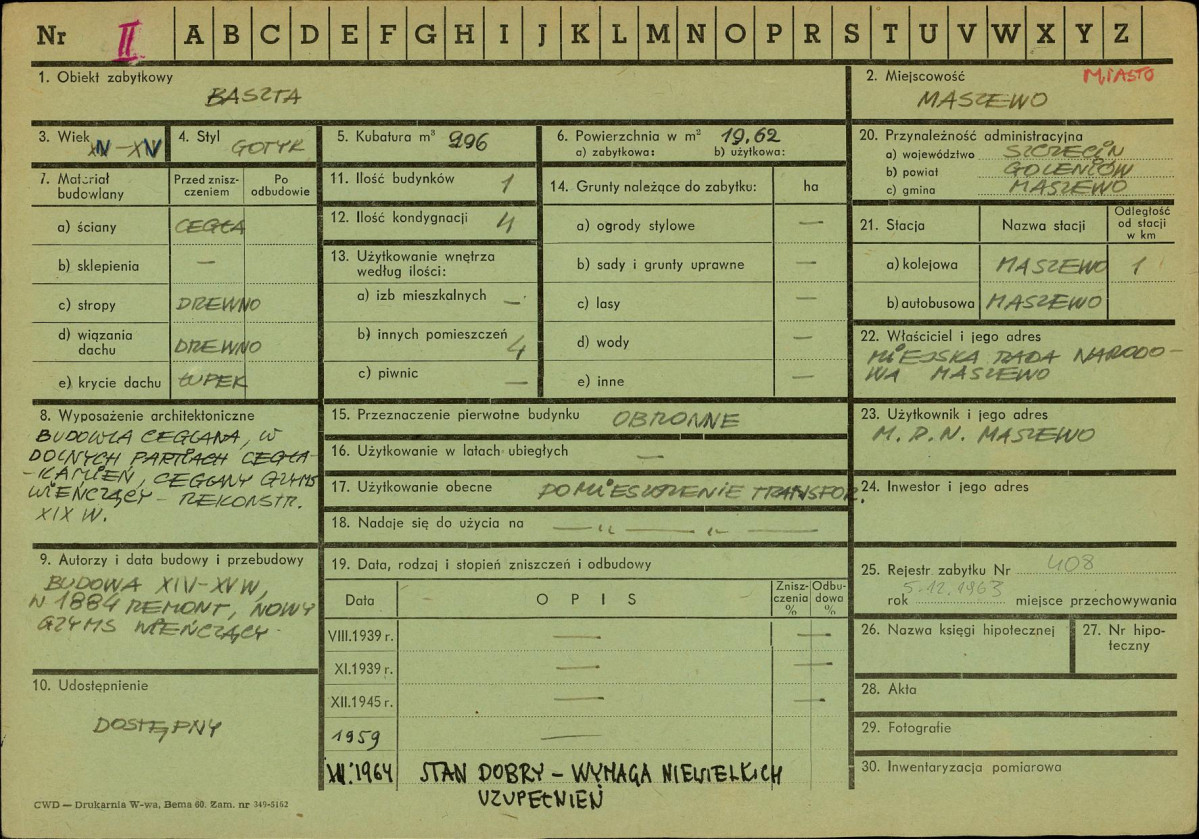 Nr II A B C D E F G H I J K L M N O P R S T U V W X Y Z
1. Obiekt zabytkowy
BASZTA
2. Miejscowość MIASTO
MASZEWO
3. Wiek XIV–XV
4. Styl GOTYK
5. Kubatura m³ 296
6. Powierzchnia w m² 19,62
a) zabytkowa: b) użytkowa:
7. Materiał budowlany
Przed zniszczeniem
Po odbudowie
a) ściany CEGŁA
b) sklepienia —
c) stropy DREWNO
d) wiązania dachu DREWNO
e) krycie dachu ŁUPEK
8. Wyposażenie architektoniczne
BUDOWLA CEGLANA, W
DOLNYCH PARTIACH CEGŁA-
-KAMIEŃ, CEGLANY GZYMS
WIEŃCZĄCY – REKONSTR.
XIX W.
9. Autorzy i data budowy i przebudowy
BUDOWA XIV–XV W,
W 1884 REMONT, NOWY
GZYMS WIEŃCZĄCY
10. Udostępnienie
DOSTĘPNY
11. Ilość budynków 1
12. Ilość kondygnacji 4
13. Użytkowanie wnętrza
według ilości:
a) izb mieszkalnych —
b) innych pomieszczeń 4
c) piwnic —
14. Grunty należące do zabytku: ha
a) ogrody stylowe —
b) sady i grunty uprawne —
c) lasy —
d) wody —
e) inne —
15. Przeznaczenie pierwotne budynku OBRONNE
16. Użytkowanie w latach ubiegłych —
17. Użytkowanie obecne POMIESZCZENIE TRANSFOR.
18. Nadaje się do użycia na — " — " —
19. Data, rodzaj i stopień zniszczeń i odbudowy
Data OPIS Zniszczenia % Odbudowa %
VIII.1939 r. — —
XI.1939 r. — —
XII.1945 r. — —
1959 —
VII.1964 STAN DOBRY – WYMAGA NIEWIELKICH
UZUPEŁNIEŃ
20. Przynależność administracyjna
a) województwo SZCZECIN
b) powiat GOLENIÓW
c) gmina MASZEWO
21. Stacja Nazwa stacji Odległość od stacji w km
a) kolejowa MASZEWO 1
b) autobusowa MASZEWO
22. Właściciel i jego adres
MIEJSKA RADA NARODO-
WA MASZEWO
23. Użytkownik i jego adres
M.R.N. MASZEWO
24. Inwestor i jego adres
25. Rejestr zabytku Nr 408
rok 5.12.1963 miejsce przechowywania
26. Nazwa księgi hipotecznej
27. Nr hipoteczny
28. Akta
29. Fotografie
30. Inwentaryzacja pomiarowa
CWD — Drukarnia W-wa, Bema 60. Zam. nr 349-5162